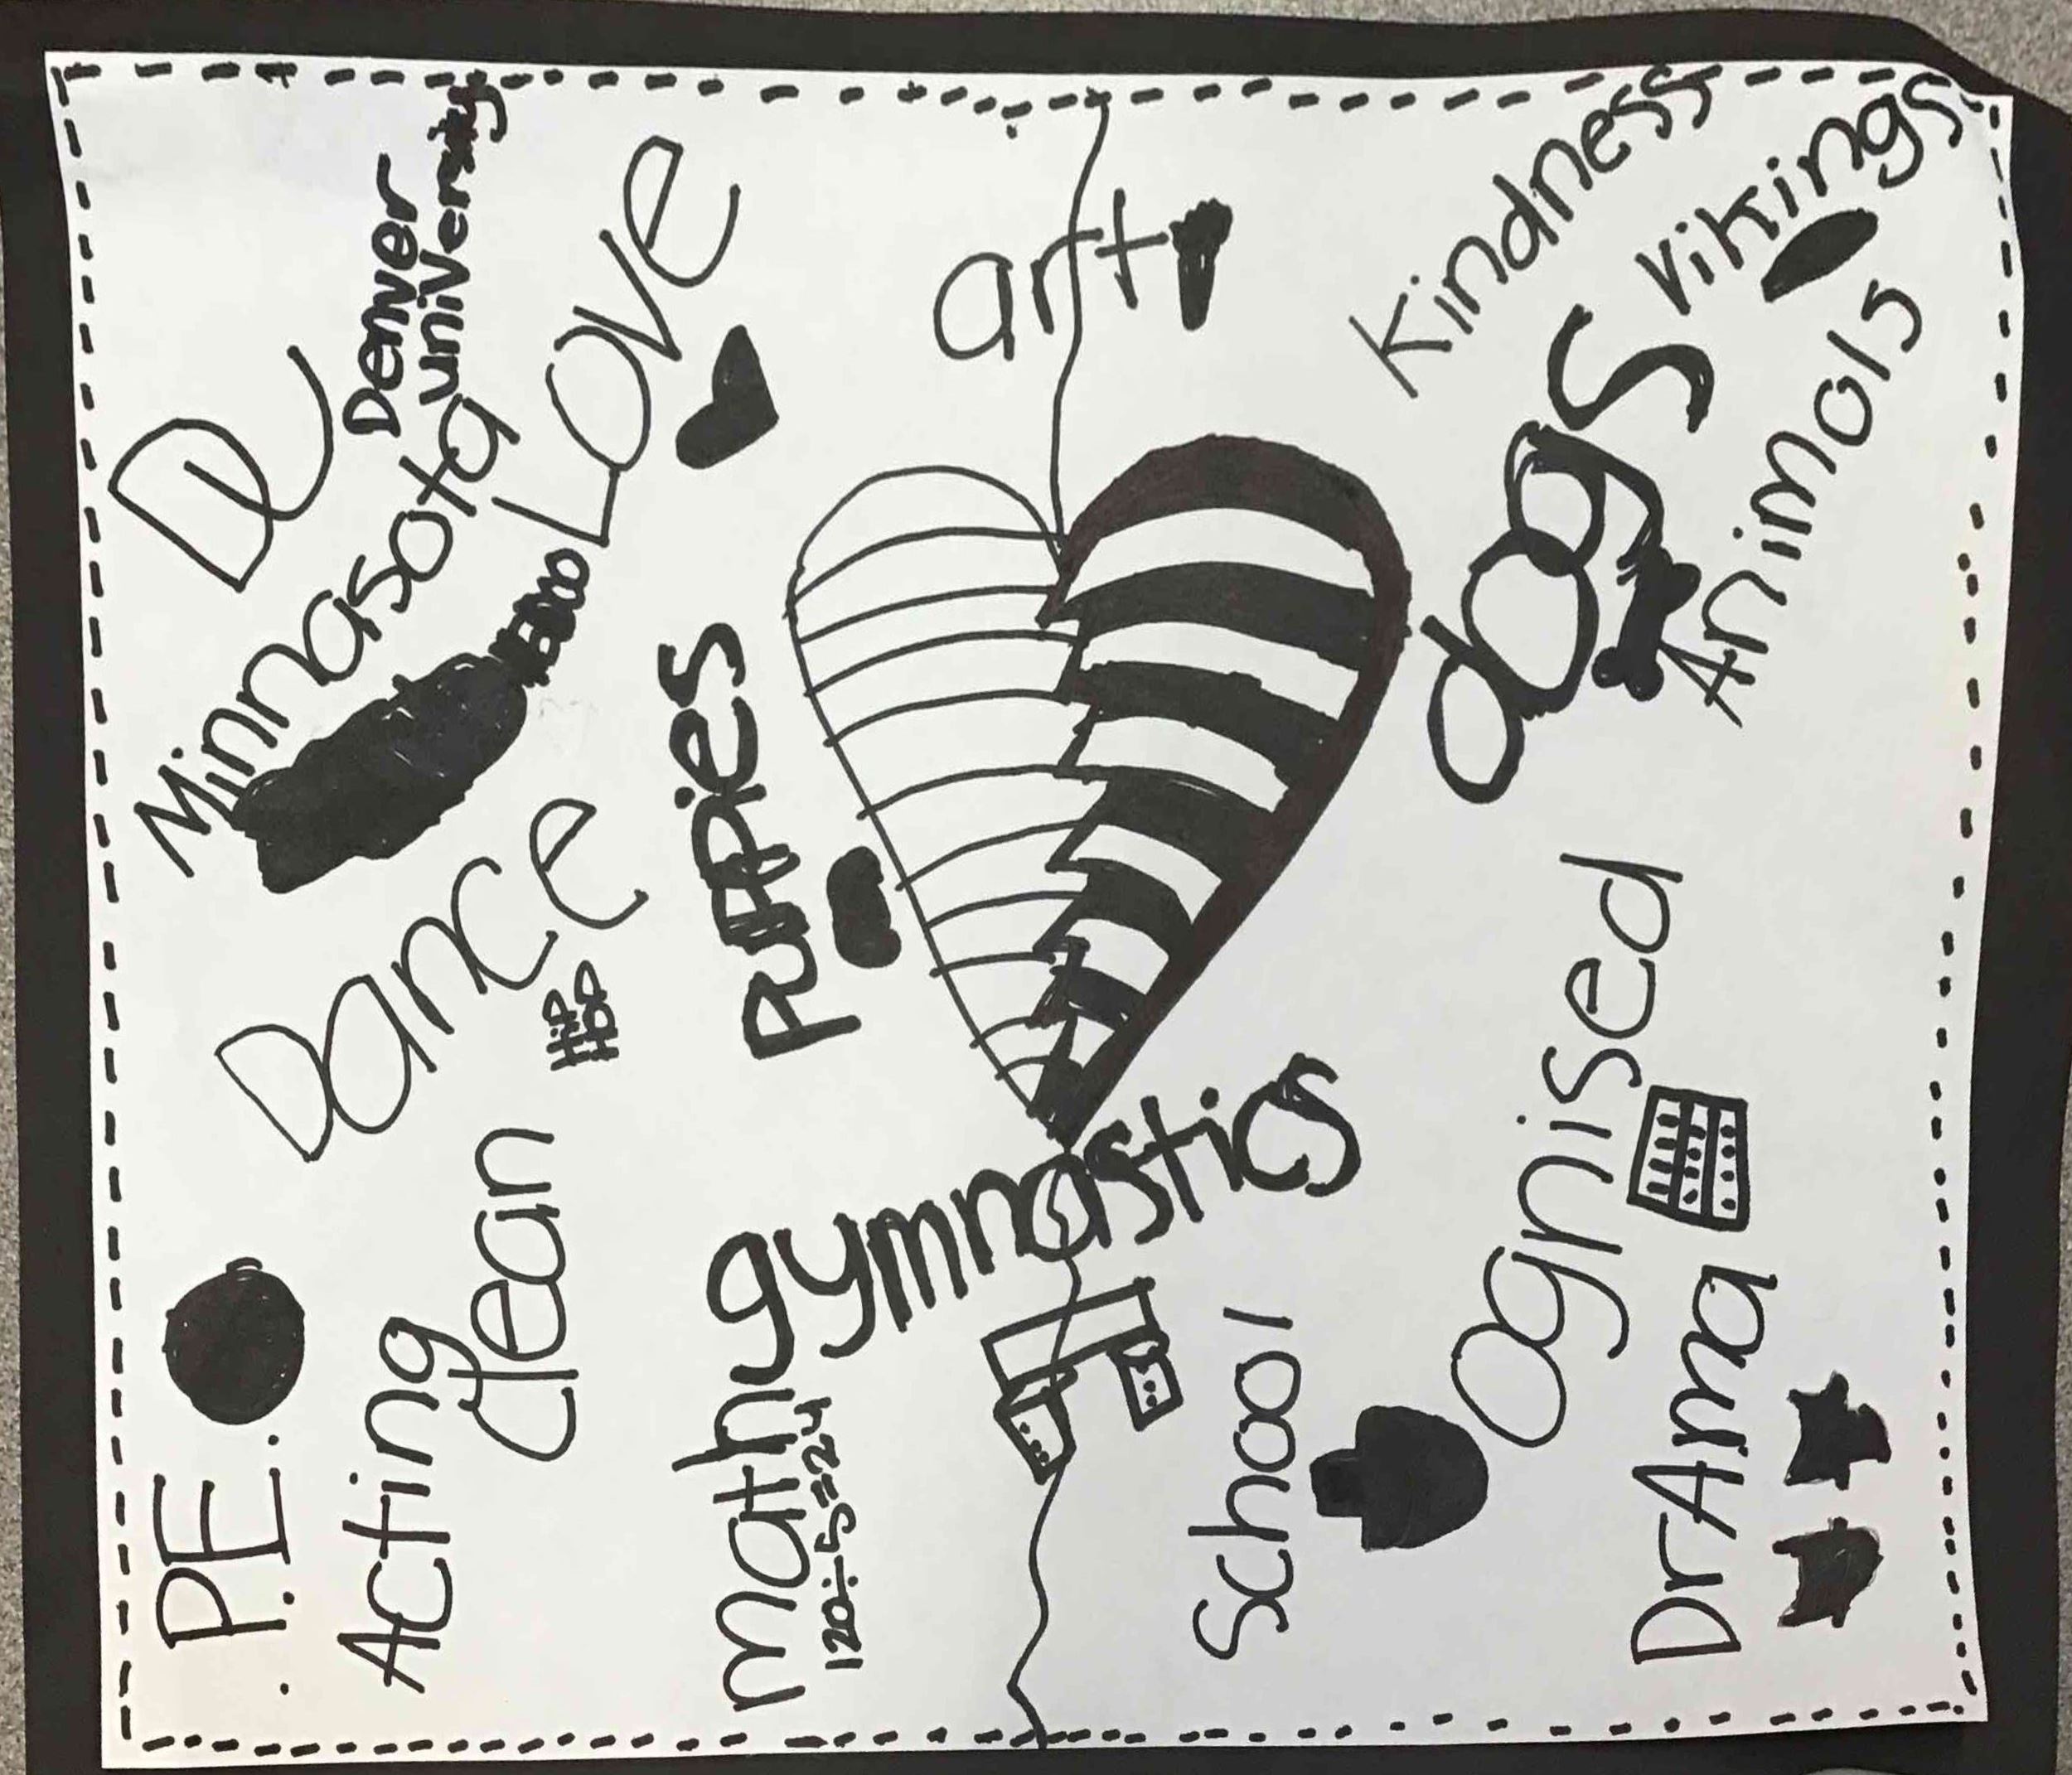 DU
Denver
university
Minnasota
Love
art
Kindness
Vikings
dogs
Animals
puppies
Dance
HiP
HOP
P.E.
Acting
clean
gymnastics
math
120÷5=24
School
Ognised
DrAma